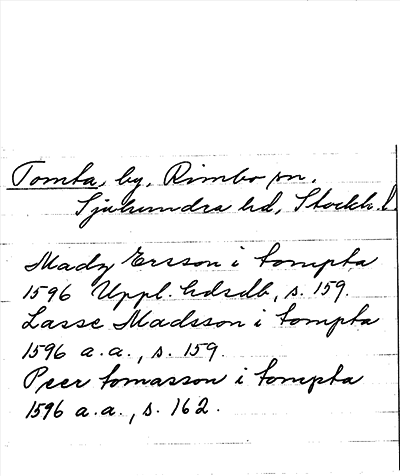 Tomta, by, Rimbo sn.
Sjuhundra hd, Stockh. l.
Madz Ersson i tompta
1596 Uppl. hdsdb, s. 159.
Lasse Madsson i tompta
1596 a.a., s. 159.
Peer tomasson i tompta
1596 a.a., s. 162.